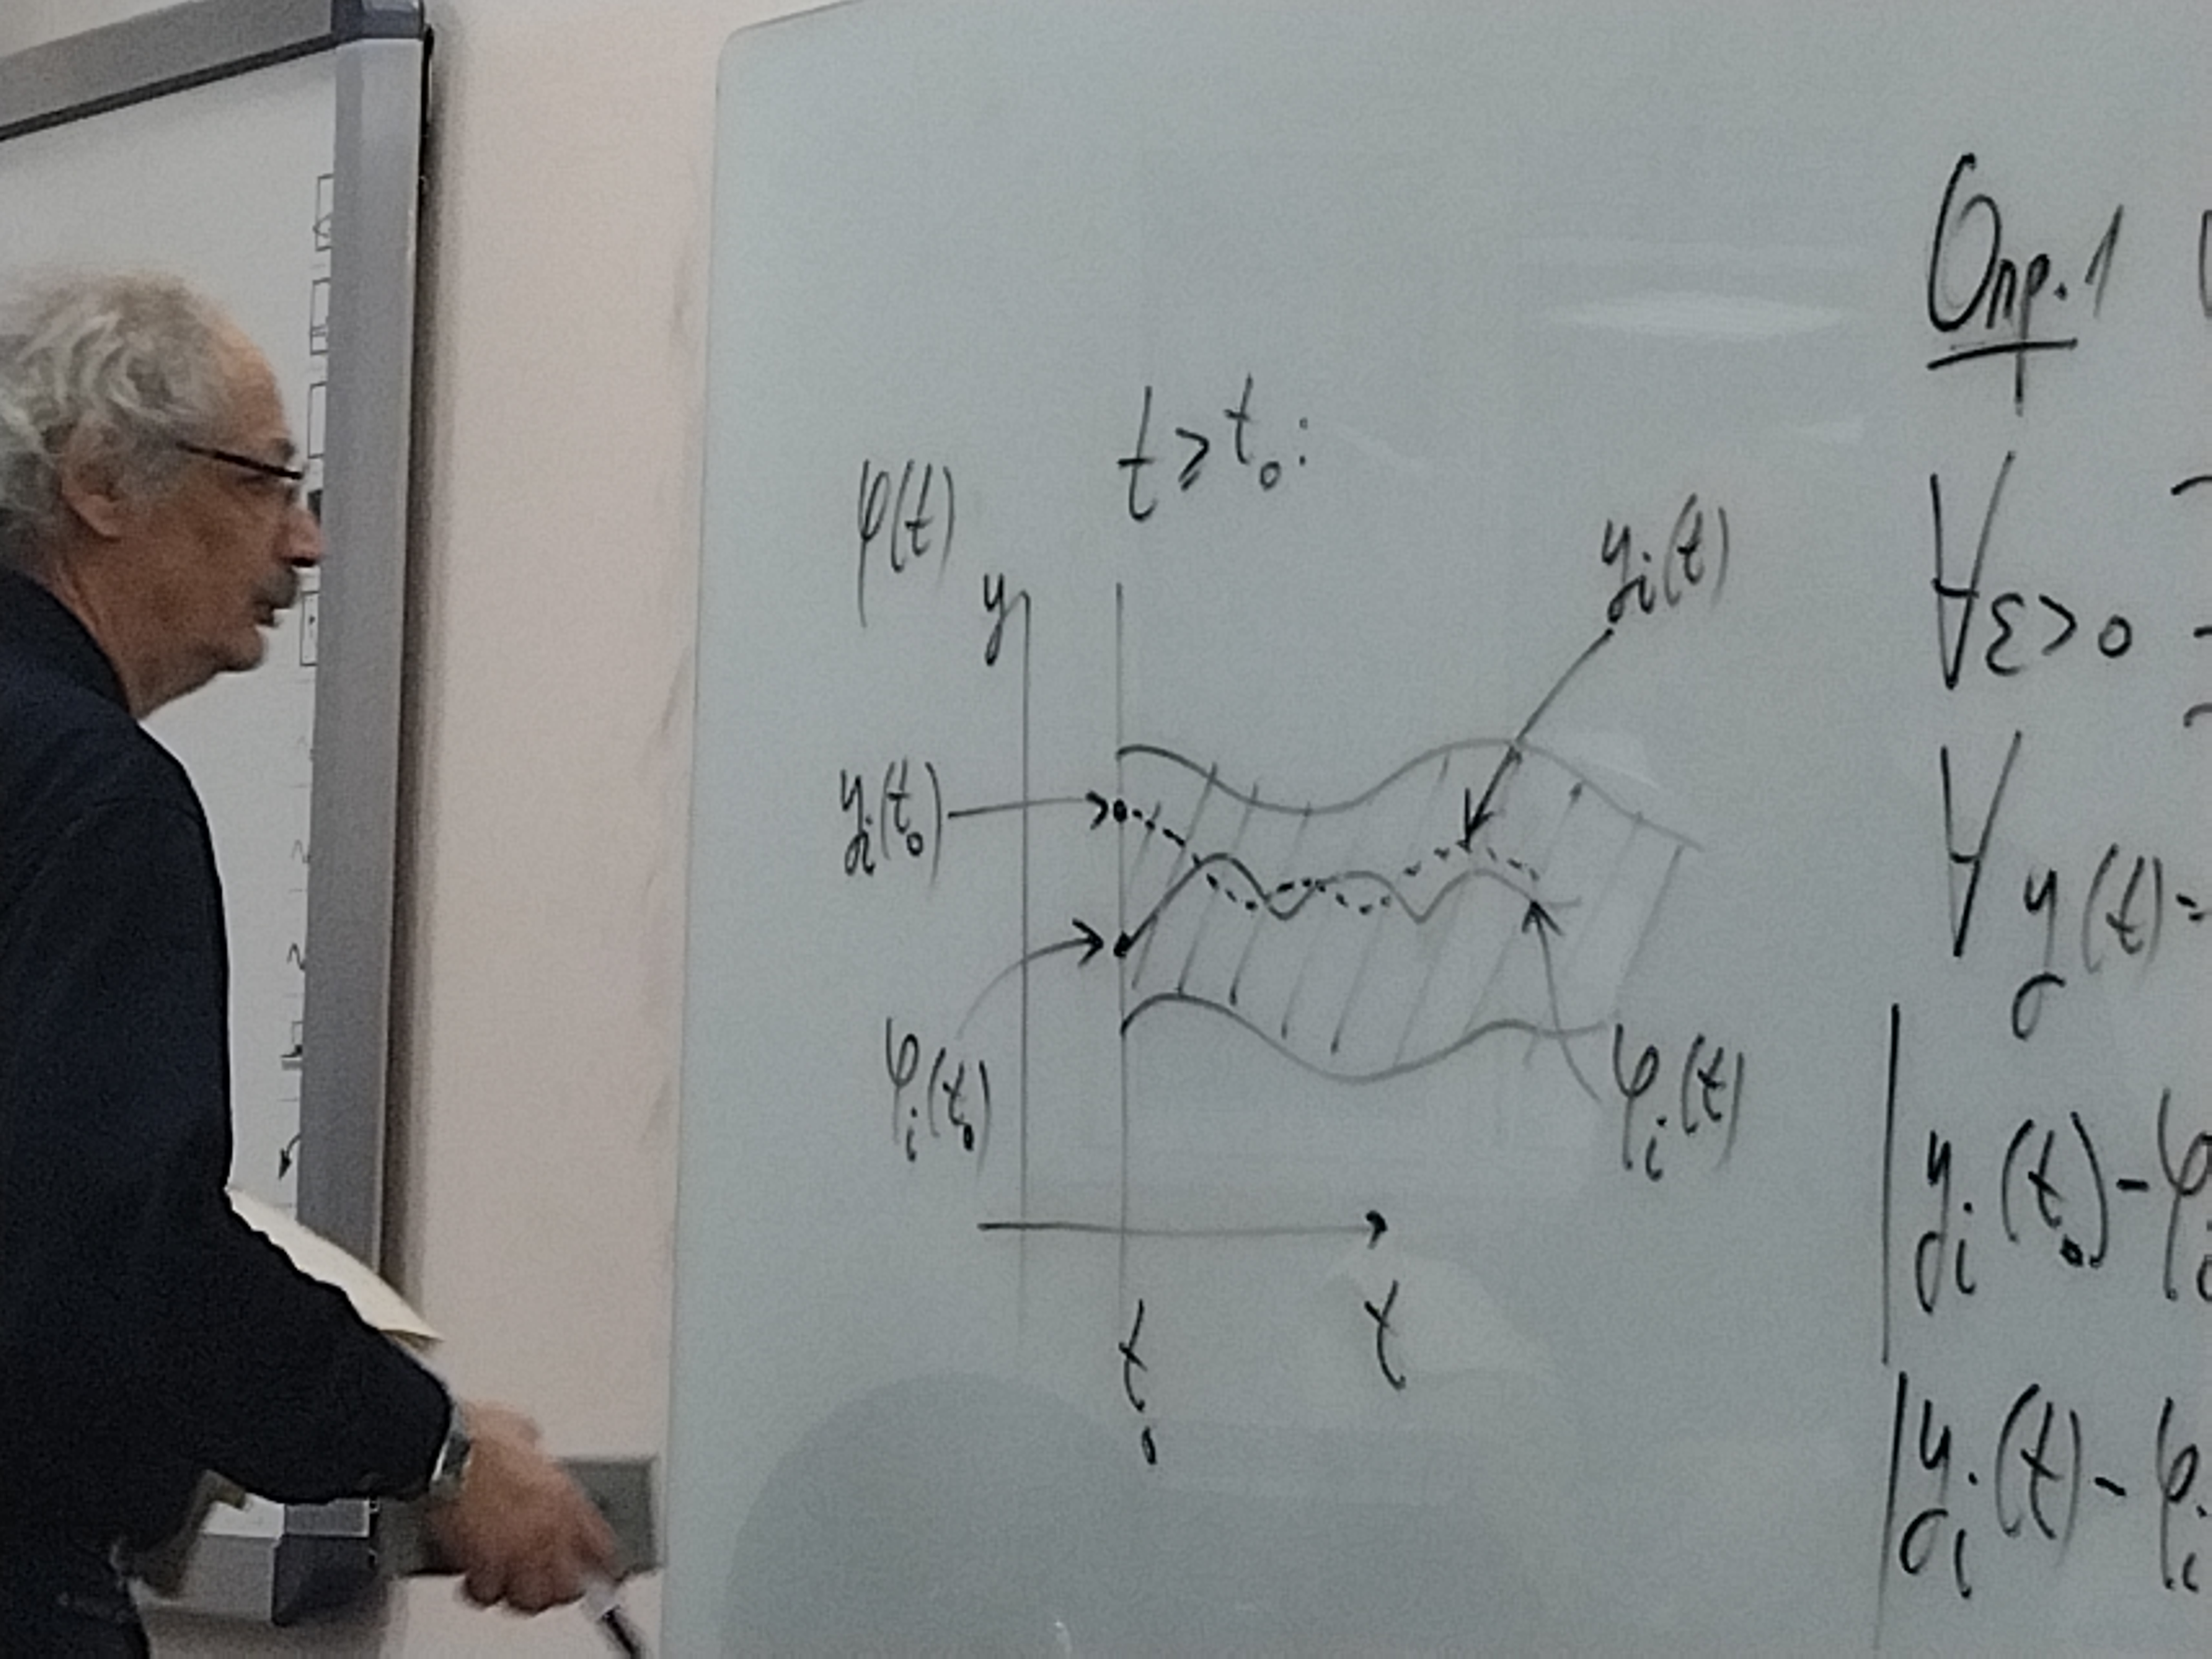 t ≥ t₀:
φ(t)
y
yᵢ(t)
yᵢ(t₀)
φᵢ(t₀)
φᵢ(t)
t₀
t
Опр.1
∀ε>0
∀ y(t)=
|yᵢ(t₀) - φᵢ
|yᵢ(t) - φᵢ